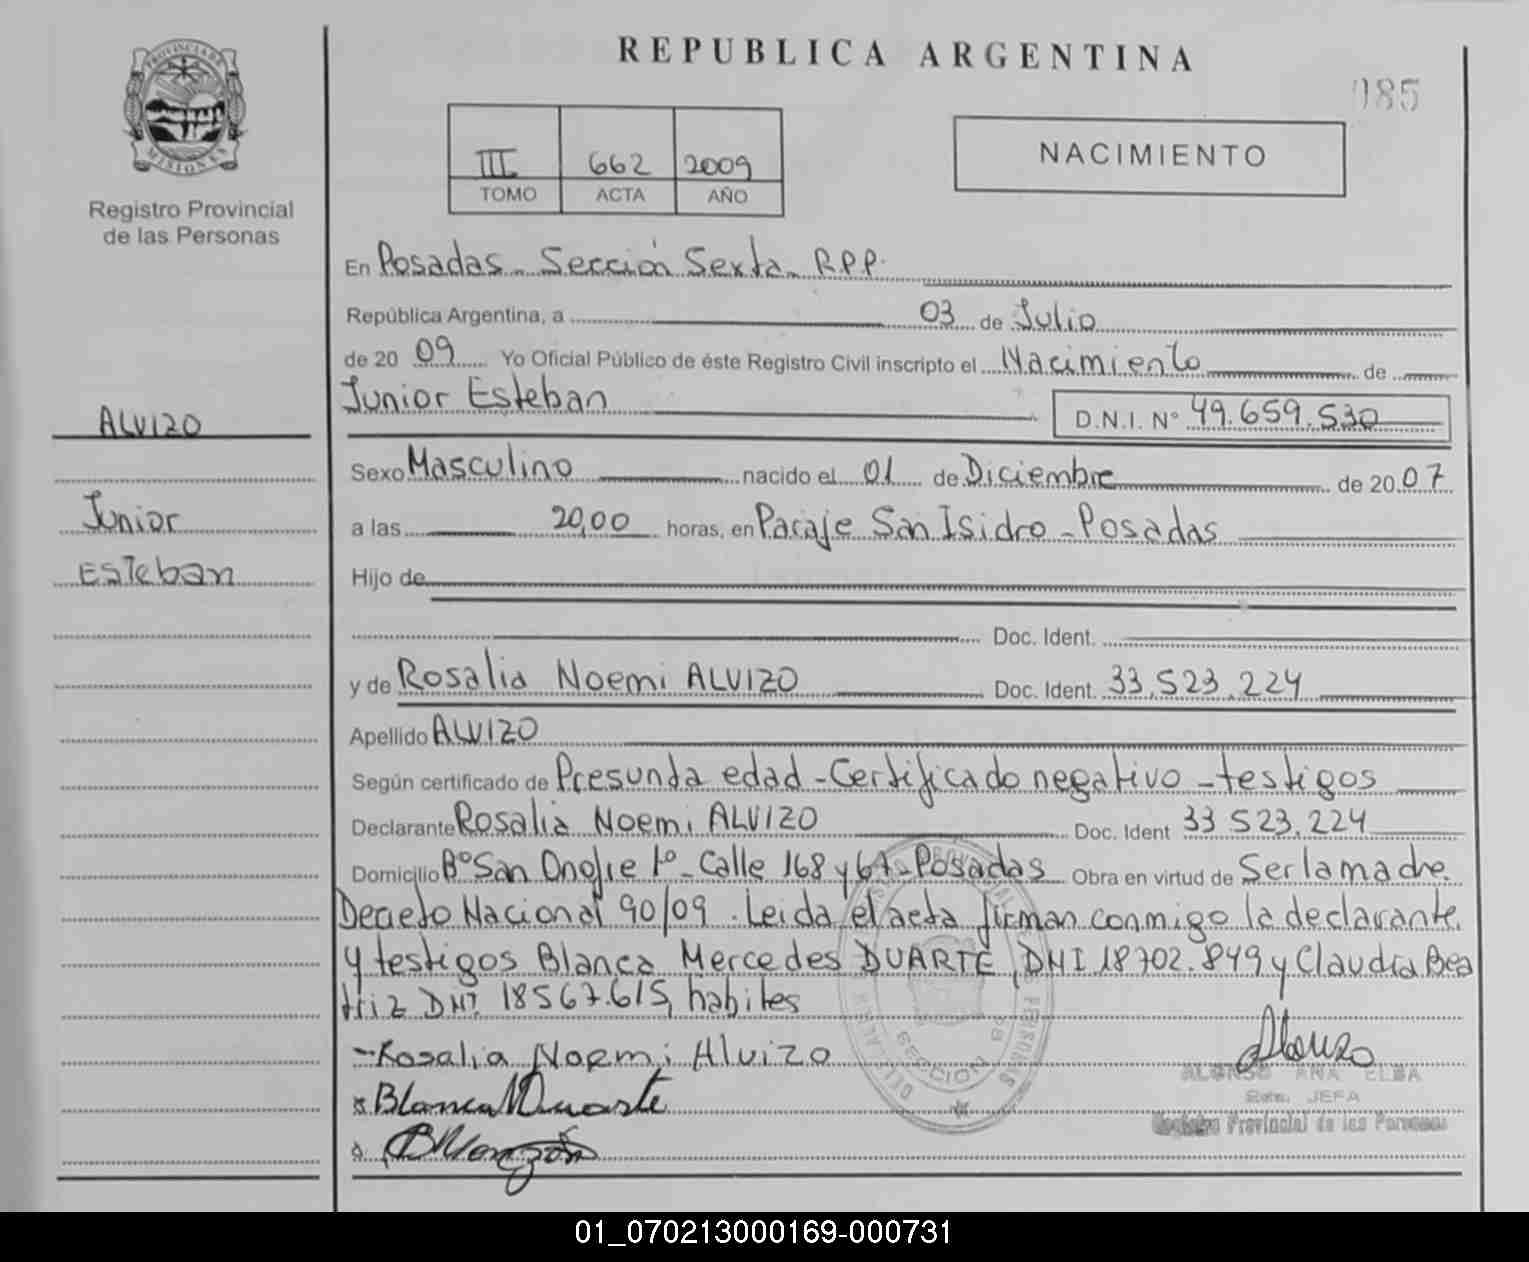 REPUBLICA ARGENTINA
085
PROVINCIA DE
MISIONES
Registro Provincial
de las Personas
III 662 2009
TOMO ACTA AÑO
NACIMIENTO
En Posadas - Sección Sexta - R.P.P.
República Argentina, a 03 de Julio
de 20 09 Yo Oficial Público de éste Registro Civil inscripto el Nacimiento de
Junior Esteban D.N.I. N° 49.659.530
ALVIZO
Junior
Esteban
Sexo Masculino nacido el 01 de Diciembre de 20 07
a las 20,00 horas, en Paraje San Isidro - Posadas
Hijo de
Doc. Ident.
y de Rosalia Noemi ALVIZO Doc. Ident. 33.523.224
Apellido ALVIZO
Según certificado de Presunta edad - Certificado negativo - testigos
Declarante Rosalia Noemi ALVIZO Doc. Ident 33 523.224
Domicilio B° San Onofre 1° - Calle 168 y 67 - Posadas Obra en virtud de Ser la madre.
Decreto Nacional 90/09. Leida el acta firman conmigo la declarante
y testigos Blanca Mercedes DUARTE, DNI 18702.849 y Claudia Bea
triz DNI. 18567.615, habiles
- Rosalia Noemi Alvizo
Blanca Duarte
SECCION
ALONSO ANA ELBA
JEFA
Registro Provincial de las Personas
01_070213000169-000731